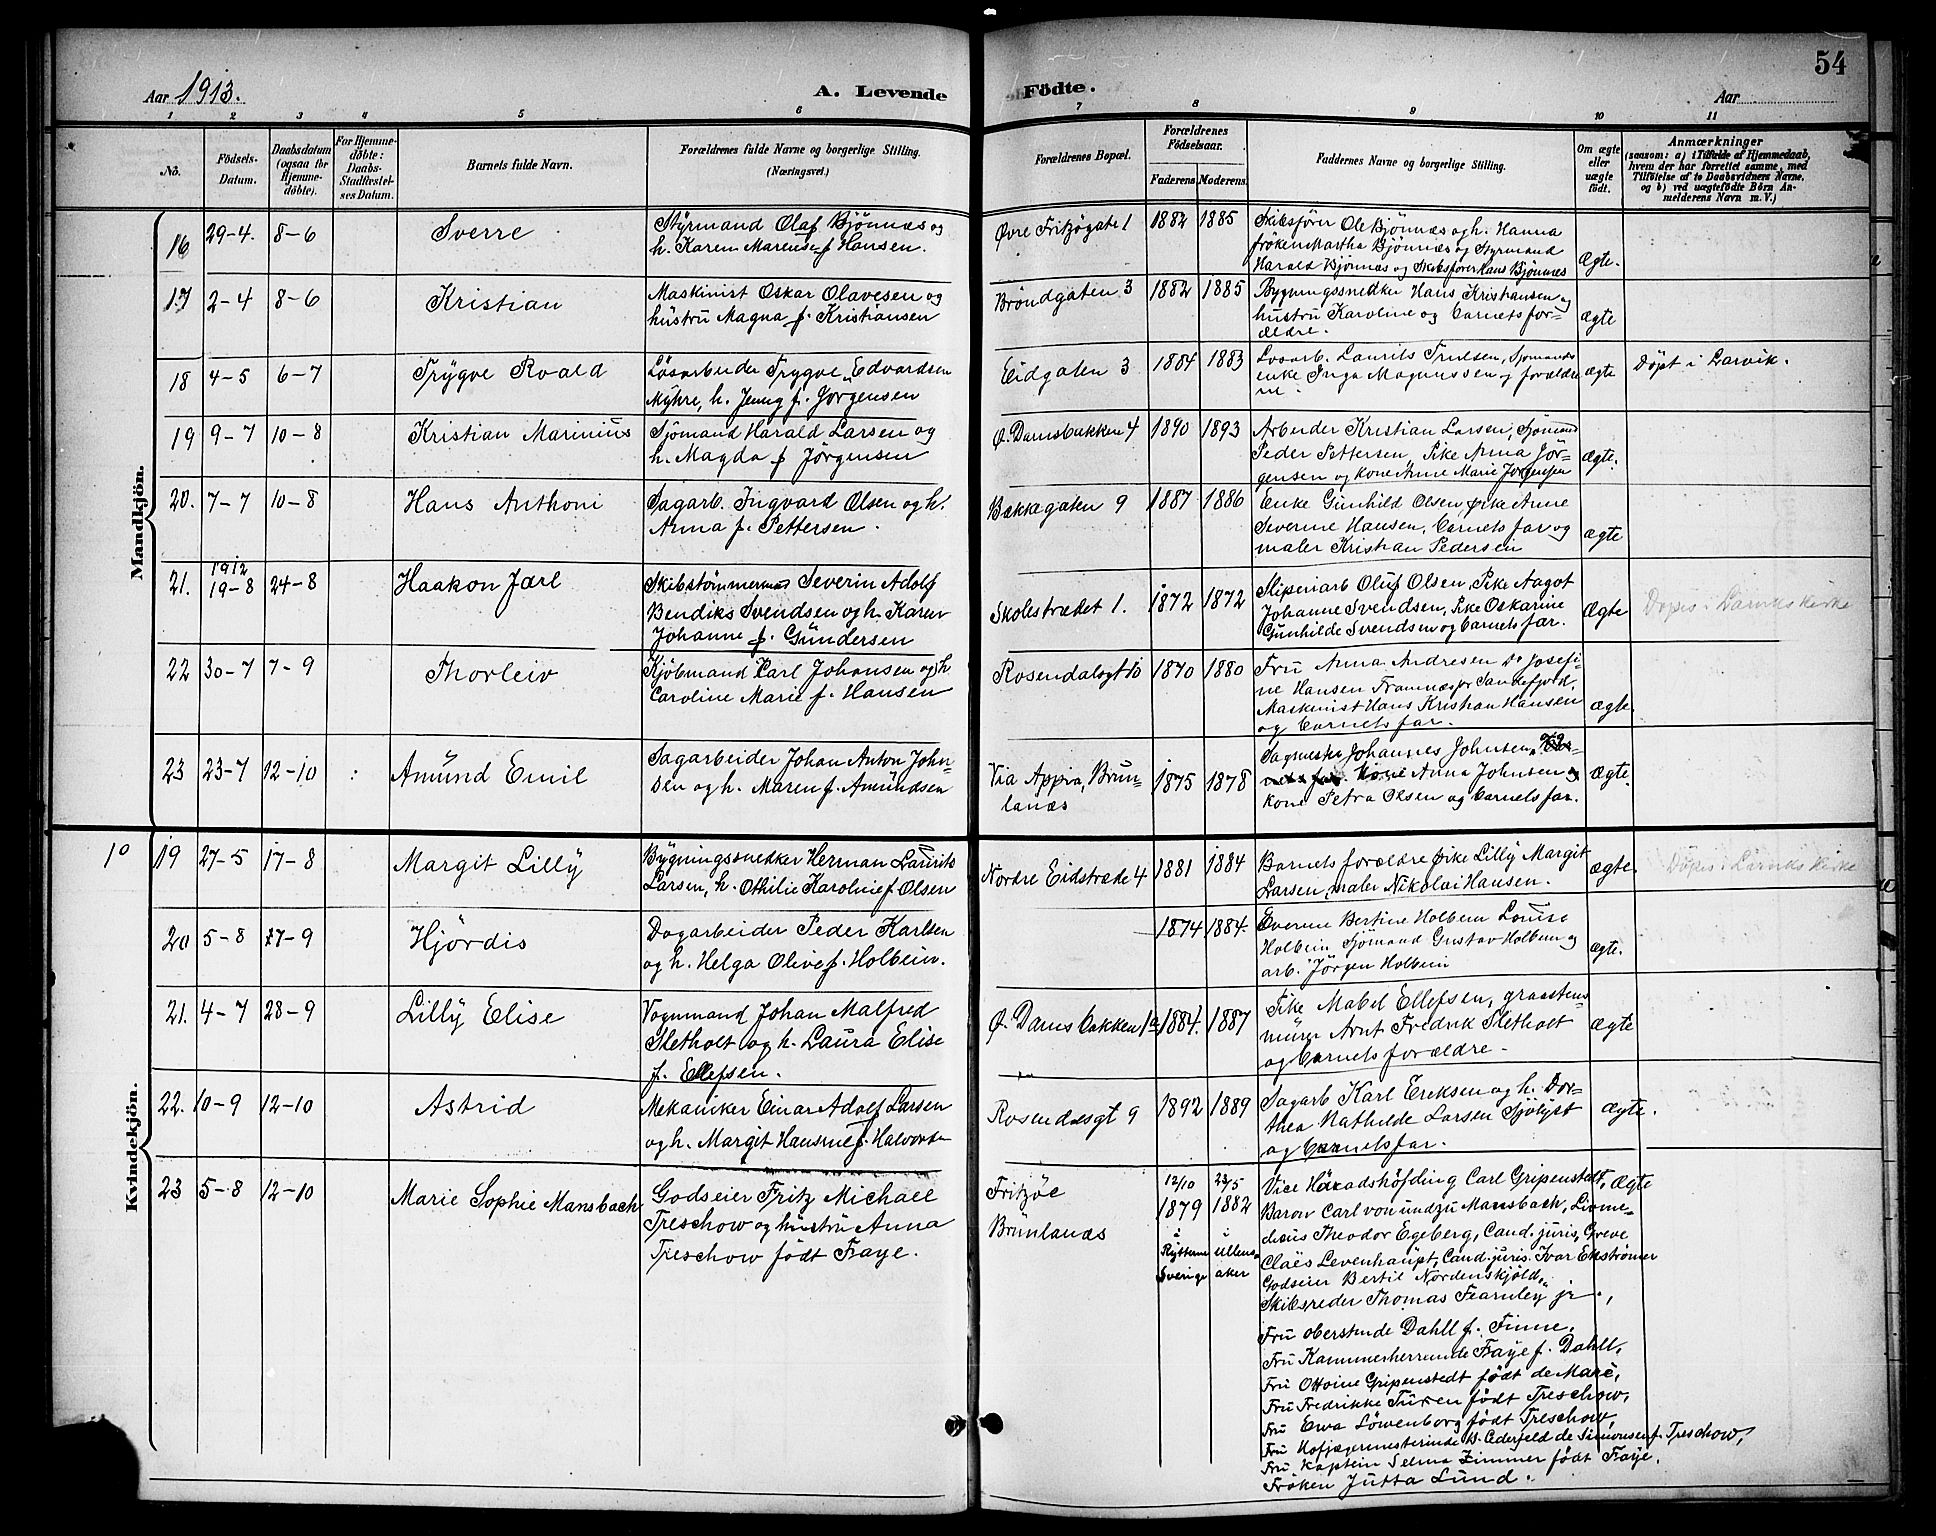 54
Aar 1913.
A. Levende
Födte.
Aar
1 2 3 4 5 6 7 8 9 10 11
No.
Födsels-Datum.
Daabsdatum (ogsaa for Hjemme-döbte).
For Hjemme-döbte: Daabs-Stadfæstel-ses Datum.
Barnets fulde Navn.
Forældrenes fulde Navne og borgerlige Stilling.
(Næringsvei.)
Forældrenes Bopæl.
Forældrenes Födselsaar.
Faderens. Moderens.
Faddernes Navne og borgerlige Stilling.
Om ægte eller uægte födt.
Anmærkninger
(saasom: a) i Tilfælde af Hjemmedaab,
hvem der har forrettet samme, med
Tilföielse af to Daabsvidners Navne,
og b) ved uægtefödte Börn An-
melderens Navn m. V.)
Mandkjön.
16 29-4. 8-6 Sverre
Styrmand Olaf Bjönnæs og
h. Karen Marense f Hansen.
Øvre Fritzögate 1 1882 1885
Skibsförer Ole Bjönnæs og h. Hanna
fröken Martha Bjönnæs og Styrmand
Harald Bjönnæs og Skibsförer Hans Bjönnæs
Ægte.
17 2-4 8-6 Kristian
Maskinist Oskar Olavesen og
hustru Magna f. Kristiansen
Bröndgaten 3 1882 1885
Bygningssnedker Hans Kristiansen og
hustru Karoline og barnets for-
ældre.
ægte
18 4-5 6-7 Trygve Roald
Lösarbeider Trygve Edvardsen
Myhre, h. Jenny f. Jörgensen
Eidgaten 3 1884 1883
Lösarb. Laurits Trulsen, Sjömands
enke Inga Magnussen og forældre
ne.
ægte
Döpt i Larvik.
19 9-7 10-8 Kristian Marinius
Sjömand Harald Larsen og
h. Magda f Jörgensen
Ø. Damsbakken 4 1890 1893
Arbeider Kristian Larsen, Sjömand
Peder Pettersen, Pike Anna Jör-
gensen og kone Anne Marie Jörgensen
ægte.
20. 7-7 10-8 Hans Anthoni
Sagarb. Ingvard Olsen og h.
Anna f. Pettersen.
Bakkegaten 9 1887 1886
Enke Gunhild Olsen, pike Anne
Severine Hansen, barnets far og
maler Kristian Pedersen
ægte
21. 1912 19-8 24-8 Haakon Jarl
Skibstømmermand Severin Adolf
Bendiks Svendsen og h. Karen
Johanne f. Gundersen
Skolestrædet 1. 1872 1872
Sliperiarb Oluf Olsen, Pike Aagot
Johanne Svendsen, Pike Oskarine
Gunhilde Svendsen og barnets far.
Ægte
Döpt i Larviks kirke
22 30-7 7-9 Thorleiv
Kjöbmand Karl Johansen og h
Caroline Marie f. Hansen
Rosendalsgt 10 1870 1880
Fru Anna Andresen Do Josefi-
ne Hansen Framnæs pr Sandefjord,
Maskinist Hans Kristian Hansen
og barnets far.
ægte.
23 23-7 12-10 Amund Emil
Sagarbeider Johan Anton John-
sen og h. Maren f. Amundsen
Via Appia, Brun-
lanæs
1875 1878
Sagmester Johannes Johnsen,
kone Anna Johnsen og
kone Petra Olsen og barnets far.
ægte.
Kvindekjön.
1° 19 27-5 17-8 Margit Lilly
Bygningssnedker Herman Laurits
Larsen, h. Othilie Karoline f. Olsen
Nordre Eidstræde 4 1881 1884
Barnets forældre pike Lilly Margit
Larsen, maler Nikolai Hansen.
ægte.
Döpt i Larviks kirke
20 5-8 27-9 Hjördis
Dagarbeider Peder Karlsen
og h. Helga Olive f. Holbein.
1874 1884.
Everine Bertine Holbein Louise
Holbein Sjömand Gustav Holbein og
arb. Jörgen Holbein
ægte.
21. 4-7 28-9 Lilly Elise
Vognmand Johan Malfred
Sletholt og h. Laura Elise
f. Ellefsen.
Ø. Damsbakken 1a 1884. 1887
Pike Mabel Ellefsen, graastens-
murer Arnt Fredrik Sletholt
og barnets forældre.
ægte
22. 10-9 12-10 Astrid
Mekaniker Einar Adolf Larsen
og h. Margit Hansine f. Halvorsen
Rosendalsgt 9 1892 1889
Sagarb Karl Eriksen og h. Dor-
thea Mathilde Larsen Sjölyst
og barnets far.
ægte.
23 5-8 12-10 Marie Sophie Mansbach
Godseier Fritz Michael
Treschow og hustru Anna
Treschow födt Faye.
Fritzöe
Brunlanæs
12/10 1879 i Rytterne Sverige
23/5 1882 i Ullens-aker
Vice Häradshöfding Carl Gripenstedt,
Baron Carl von und zu Mansbach, Livme-
dicus Theodor Egeberg, Cand. juris, Greve
Claës Levenhaupt, Cand. juris. Ivar Ekströmer
Godseier Bertil Nordenskjöld,
Skibsreder Thomas Fearnley jr.,
Fru Oberstinde Dahll f. Finne,
Fru Kammerherreinde Faye f. Dahll,
Fru Ottoine Gripenstedt födt de Maré,
Fru Fredrikke Turen födt Treschow,
Fru Ewa Löwenborg födt Treschow,
Fru Hofjægermesterinde B. Cederfeld de Simonsen f. Treschow,
Fru Kaptein Selma Zimmer födt Faye.
Fröken Jutta Lund.
ægte